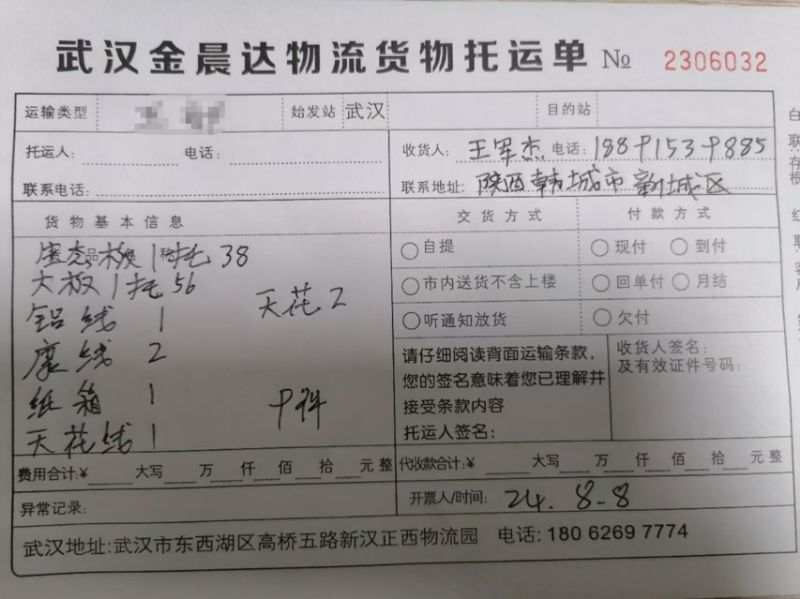 武汉金晨达物流货物托运单 № 2306032
运输类型 始发站 武汉 目的站
托运人: 电话: 收货人: 王军杰 电话: 18891539885
联系电话: 联系地址: 陕西韩城市新城区
货物基本信息 交货方式 付款方式
板 1托 38
大板 1托 56
天花 2
铝线 1
康线 2
纸箱 1
9件
天花线 1
自提 现付 到付
市内送货不含上楼 回单付 月结
听通知放货 欠付
请仔细阅读背面运输条款,
您的签名意味着您已理解并
接受条款内容
托运人签名:
收货人签名:
及有效证件号码:
费用合计:¥ 大写 万 仟 佰 拾 元整 代收款合计:¥ 大写 万 仟 佰 拾 元整
异常记录: 开票人/时间: 24.8-8
武汉地址:武汉市东西湖区高桥五路新汉正西物流园 电话: 180 6269 7774